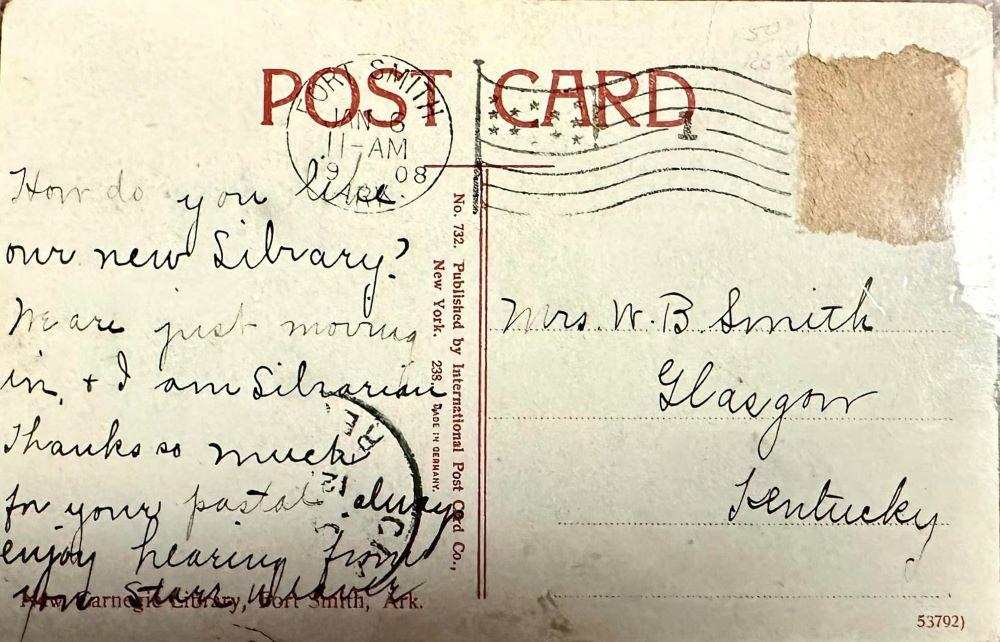 POST CARD
FORT SMITH
JAN 6
11-AM
1908
ARK.
1
How do you like
our new Library?
We are just moving
in, & I am Librarian
Thanks so much
for your postal always
enjoy hearing from
you
New Carnegie Library, Fort Smith, Ark.
No. 732. Published by International Post Card Co.,
New York. 238. MADE IN GERMANY.
Mrs. W. B Smith
Glasgow
Kentucky
53792)